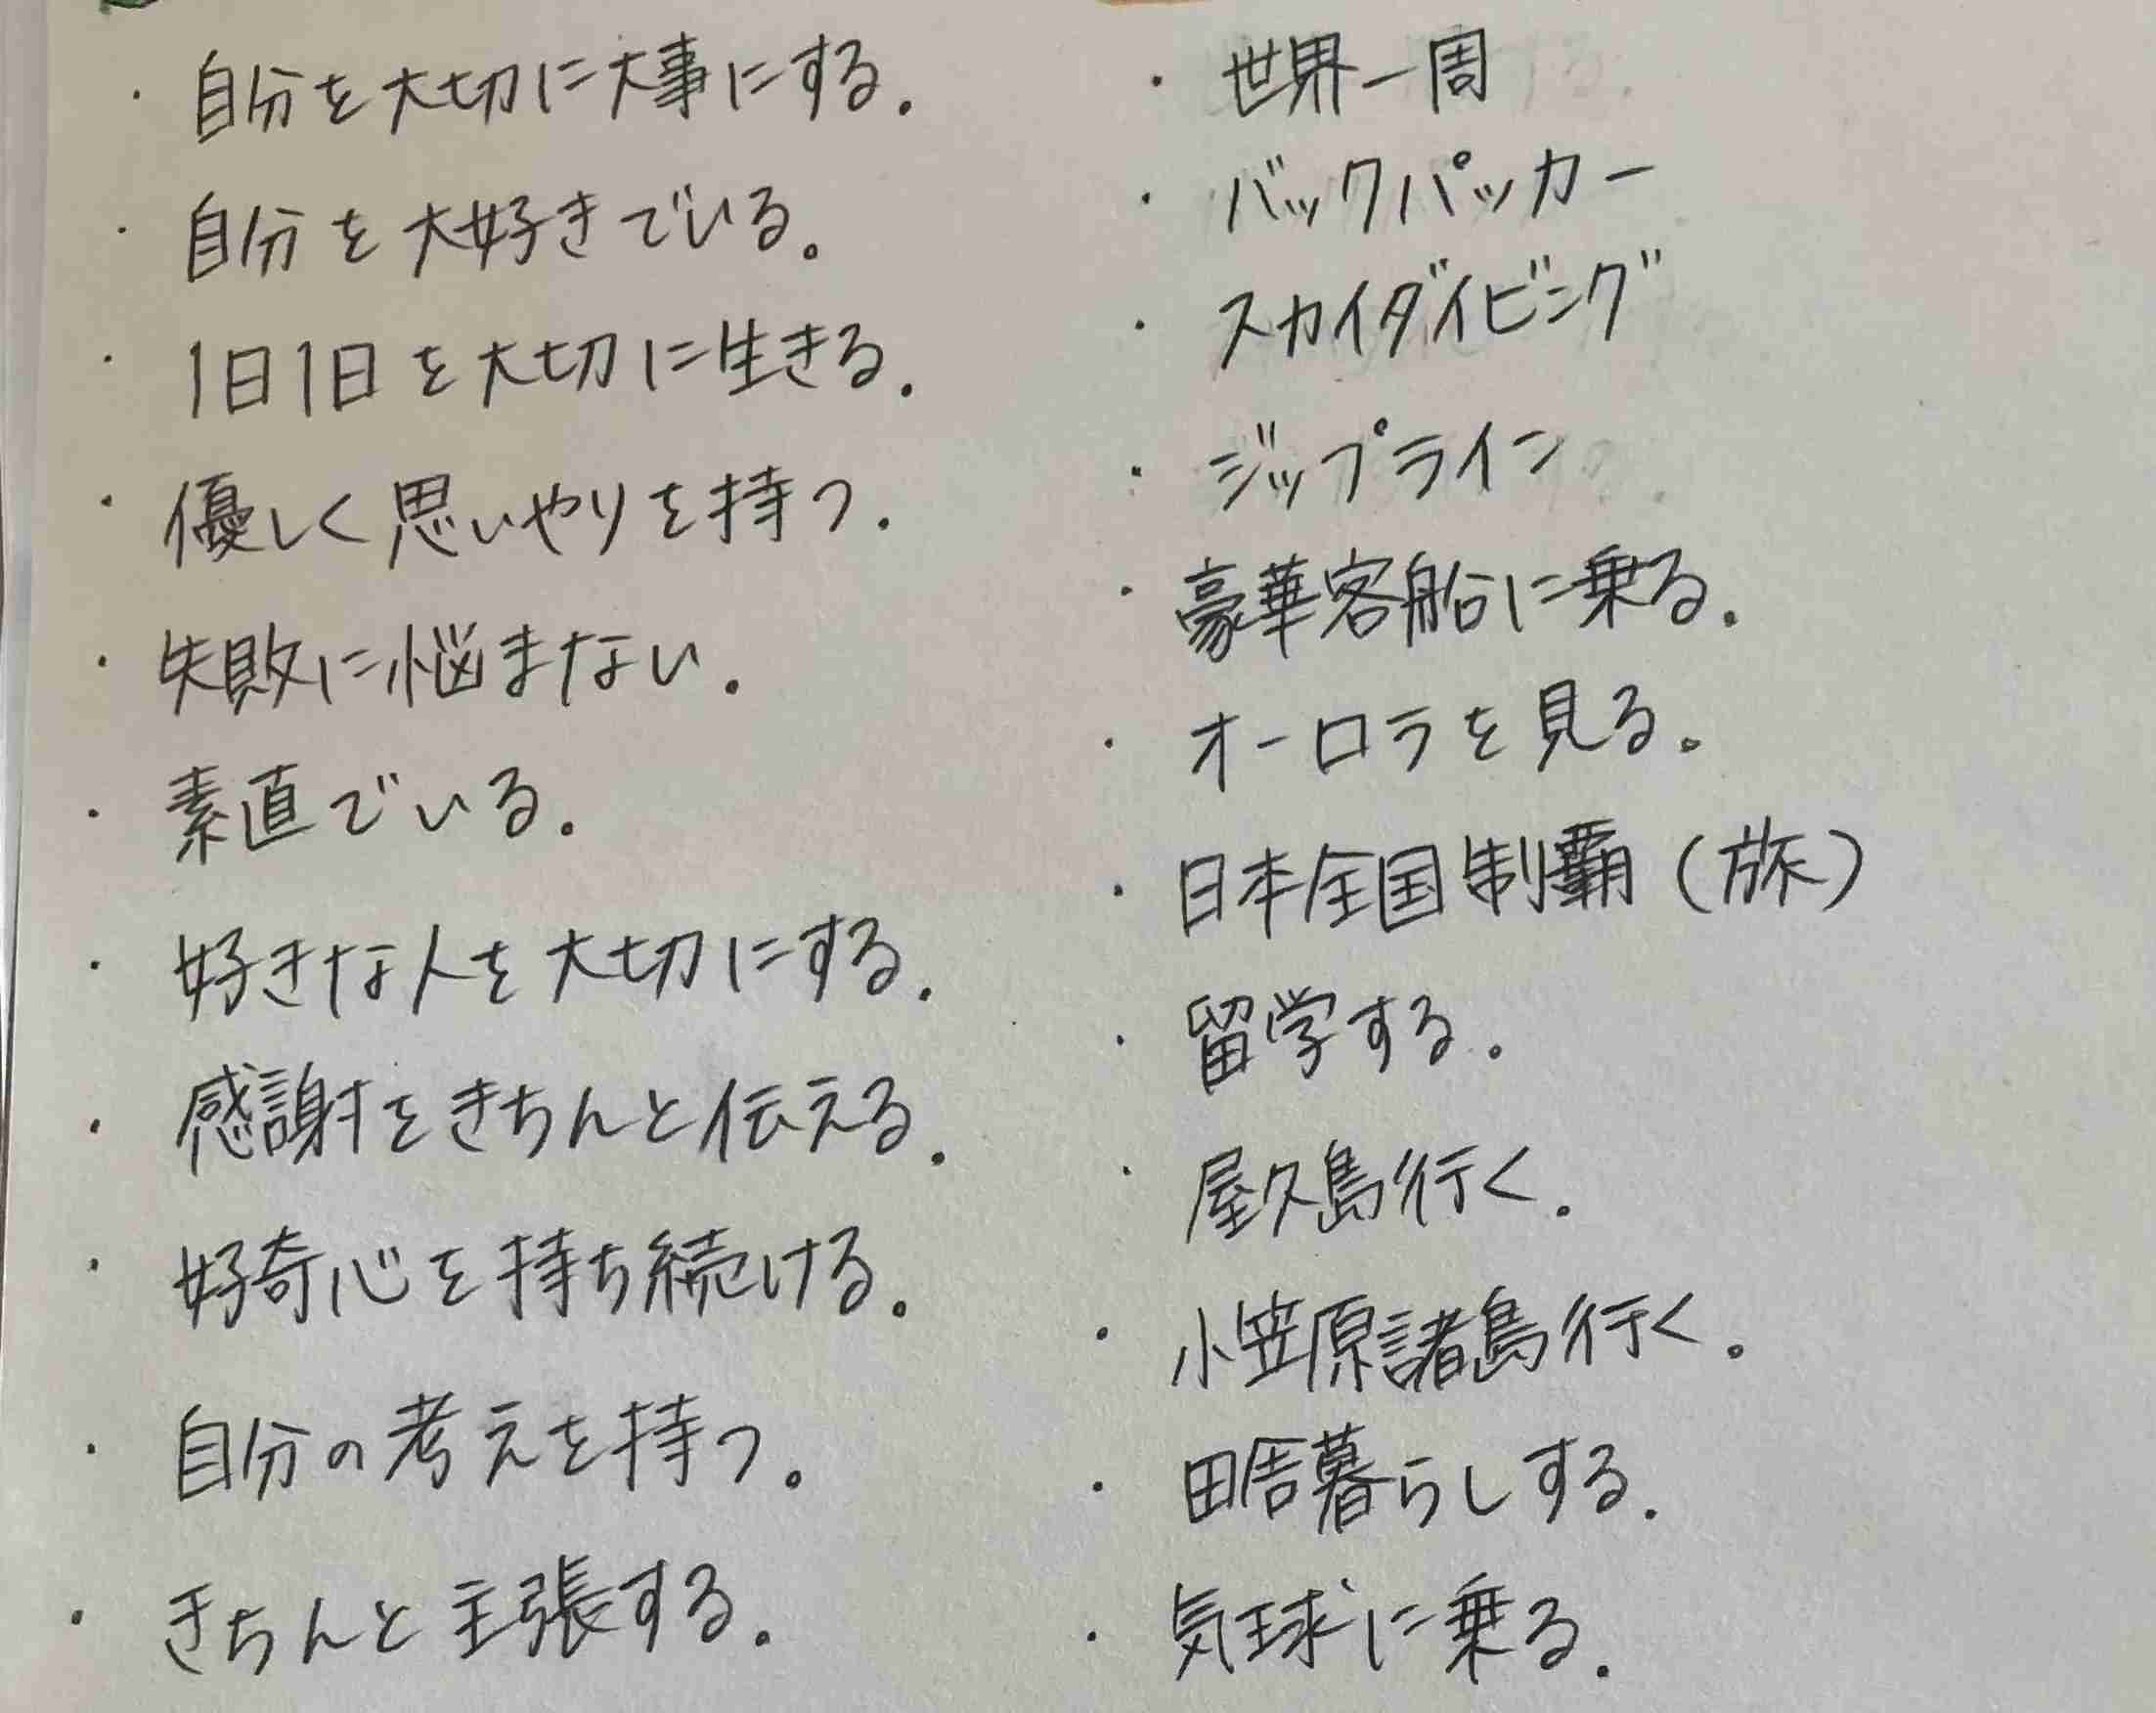 ・自分を大切に大事にする.
・自分を大好きでいる。
・1日1日を大切に生きる.
・優しく思いやりを持つ.
・失敗に悩まない.
・素直でいる.
・好きな人を大切にする.
・感謝をきちんと伝える.
・好奇心を持ち続ける.
・自分の考えを持つ.
・きちんと主張する.
・世界一周
・バックパッカー
・スカイダイビング
・ジップライン
・豪華客船に乗る.
・オーロラを見る。
・日本全国制覇(旅)
・留学する.
・屋久島行く.
・小笠原諸島行く.
・田舎暮らしする.
・気球に乗る.